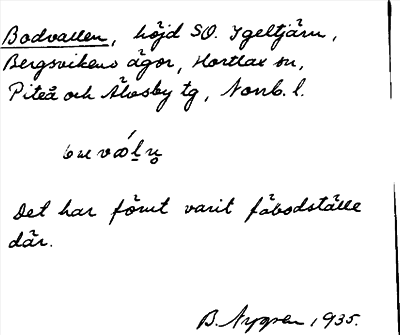 Bodvallen, höjd SO. Igeltjärn,
Bergsvikens ägor, Hortlax sn,
Piteå och Älvsby tg, Norrb. l.
Det har förut varit fäbodställe
där.
B. Nygren, 1935.